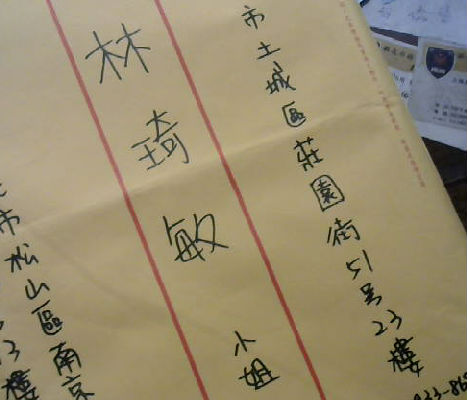 市土城區莊園街51号23樓
林琦敏 小姐
市松山區南京
13樓